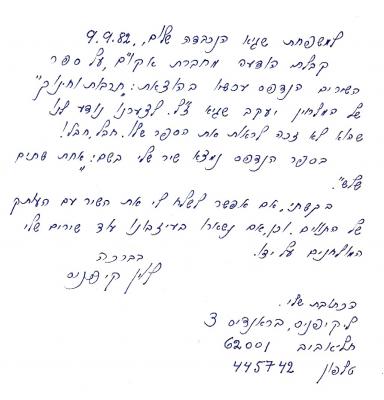 למשפחת שגיא הנכבדה שלום, 9.9.82.
קבלתי הודעה מחברת אקו"ם, על ספר
השירים הנדפס עכשו בהוצאת: "תרבות וחינוך"
של המלחין יעקב שגיא ז"ל. לצערנו נודע לנו
שהוא לא זכה לראות את הספר שלו. חבל, חבל!
בספר הנדפס נמצא שיר שלי בשם: "אחת שתים
שלש".
בבקשתי, אם אפשר לשלוח לי את השיר עם העתק
של התוים. וכן, אם נשארו בעיזבונו עוד שירים שלי
המולחנים על ידו.
בברכה
לוין קיפניס
הכתובת שלי.
ל. קיפניס, בראנדיס 3
תל-אביב 62001
טלפון 445742